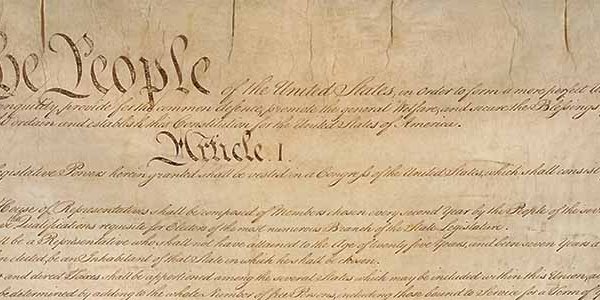 he People of the United States, in order to form a more perfect U
anquility, provide for the common defence, promote the general Welfare, and secure the Blessings
ordain and establish this Constitution for the United States of America.
Article. I.
egislative Powers herein granted shall be vested in a Congress of the United States, which shall consist
House of Representatives shall be composed of Members chosen every second Year by the People of the seve
Qualifications requisite for Electors of the most numerous Branch of the State Legislature.
be a Representative who shall not have attained to the Age of twenty five Years, and been seven Years a
elected, be an Inhabitant of that State in which he shall be chosen.
and direct Taxes shall be apportioned among the several States which may be included within this Union, ac
be determined by adding to the whole Number of free Persons, including those bound to Service for a Term of Y